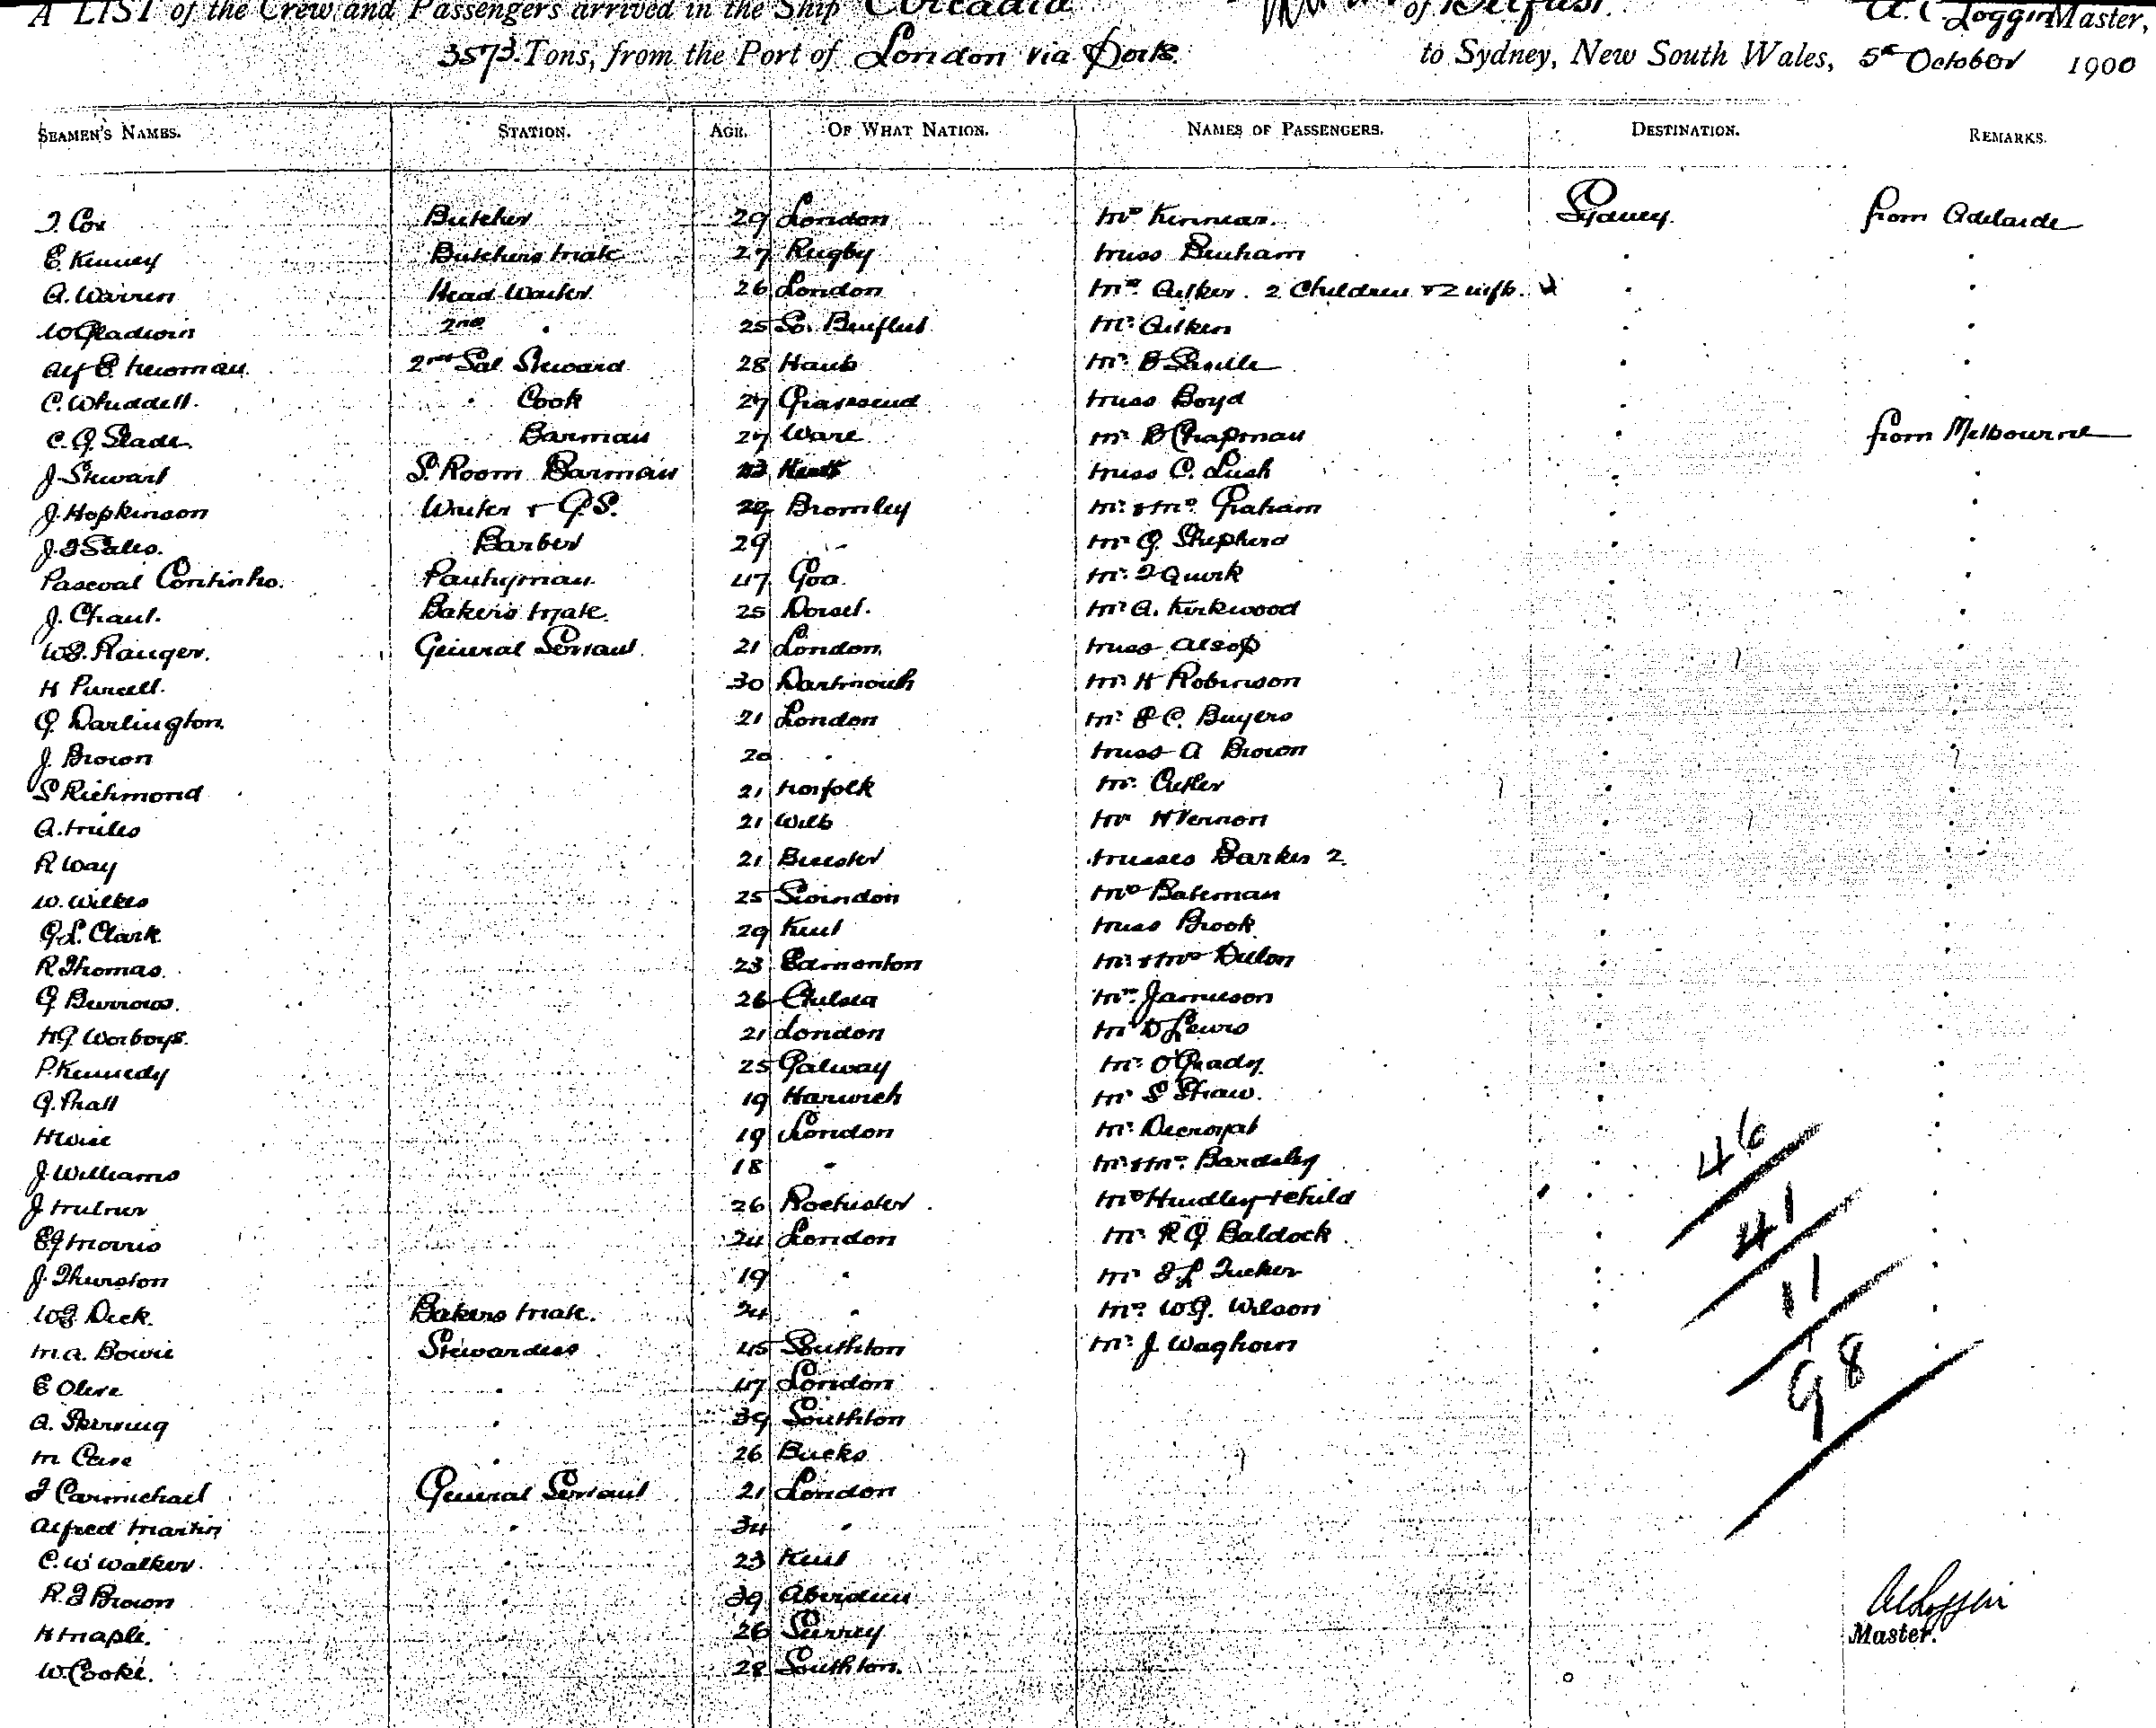 A LIST of the Crew and Passengers arrived in the Ship Arcadia of Belfast. A. C. Loggin Master,
3573 Tons, from the Port of London via Ports to Sydney, New South Wales, 5th October 1900
SEAMEN'S NAMES. STATION. AGE. OF WHAT NATION. NAMES OF PASSENGERS. DESTINATION. REMARKS.
J. Cox Butcher 29 London Mrs Kinnear. Sydney. from Adelaide
E. Kenney Butchers Mate 27 Rugby Miss Benham
A. Warren Head Waiter 26 London Mrs 2 Children & 2 infts.
W Gladwin 2nd " 25 So. Benfleet Mr. Aitken
Alf E. Newman 2nd Sal Steward 28 Hants Mr. B Saville
C. Whiddett. " Cook 27 Gravesend Miss Boyd
C. G. Slade. Barman 27 Ware Mr. B Chapman from Melbourne
J. Stewart S. Room Barman 23 Miss C. Lush
J. Hopkinson Writer & G.S. 29 Bromley Mr. & Mrs. Graham
J. F Sales. Barber 29 " Mr G. Shepherd
Pascoal Continho. Pantryman. 47 Goa Mr. F Quirk
J. Chant. Bakers Mate. 25 Dorset. Mr A. Kirkwood
W F. Ranger. General Servant 21 London. Miss Alsop
H Purcell. 30 Dartmouth Mr. H Robinson
G. Darlington. 21 London Mr. C. Buyers
J. Brown 20 " Miss A Brown
S Richmond 21 Norfolk Mr. Cutler
A. Miles 21 Wilts Mr H Vernon
R Way 21 Bicester Misses Barker 2.
W. Wilkes 25 Swindon Mrs Bateman
G L. Clark. 29 Kent Miss Brook
R Thomas. 23 Edmonton Mr. & Mrs Dillon
G Burrows. 26 Chelsea Mrs. Jamieson
H G Worboys. 21 London Mr D Lewis
P. Kennedy 25 Galway Mr. O'Grady
G. Pratt 19 Harwich Mr S Straw.
H Wise 19 London Mr.
J. Williams 18 " Mr & Mrs. Bardsley
J Milner 26 Rochester Mrs Hindley & Child
E J Morris 24 London Mr. R G Baldock
J. Thurston 19 " Mr Tucker
W F Dick. Bakers Mate. 24 " Mr. W G. Wilson
M. A. Bowie Stewardess 45 Southton Mr. J. Waghorn
E Olive " 47 London
A. Perring " 39 Southton
M Case " 26 Bucks
J Carmichael General Servant 21 London
Alfred Martin " 34 "
C. W Walker. " 23 Kent
R. F Brown " 39 Aberdeen
H Maple. 26 Surrey
W. Cooke. " 28 Southton.
46
41
11
98
A C Loggin
Master.